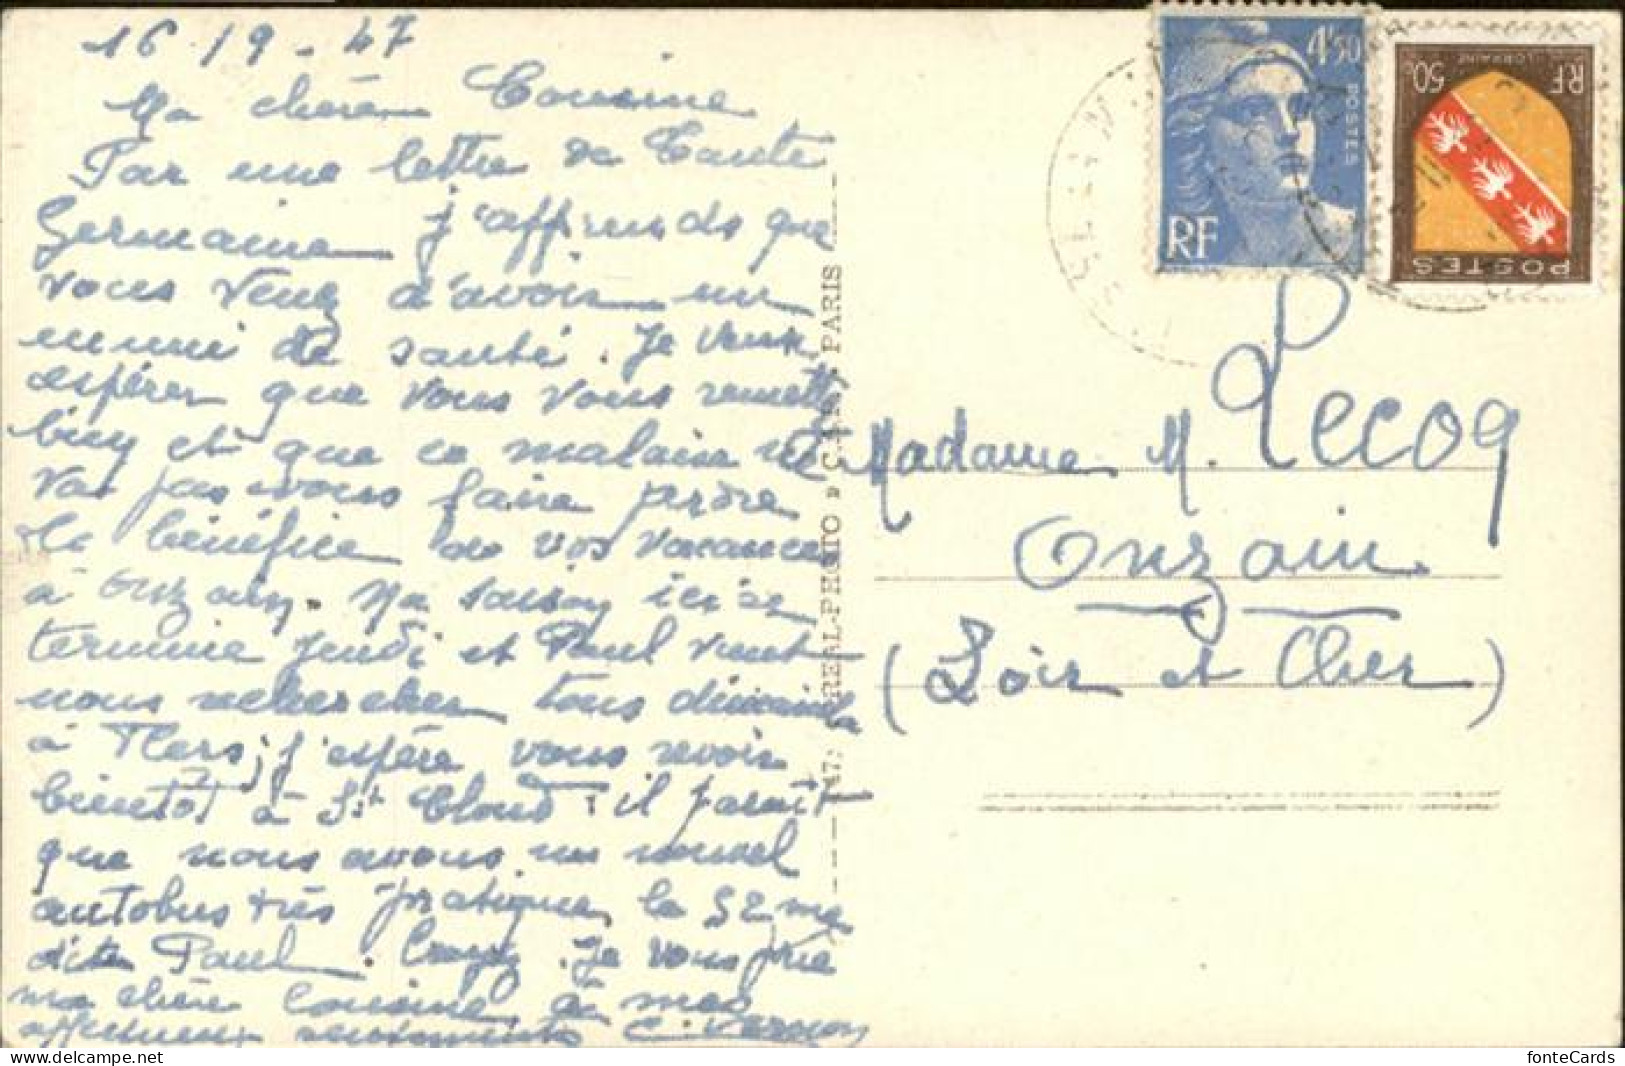 16/9-47
Ma chère Cousine
Par une lettre de Tante
Germaine j'apprends que
vous venez d'avoir un
ennui de santé. Je veux
espérer que vous vous remettez
bien et que ce malaise ne
va pas vous faire perdre
le bénéfice de vos vacances
à Onzain. Ma saison ici se
termine jeudi et Paul vient
nous rechercher tous dimanche
à Flers, j'espère vous revoir
bientôt à St Cloud. il paraît
que nous avons un nouvel
autobus très pratique, le 52 me
dit Paul. Croyez, Je vous prie
ma chère Cousine, à mes
affectueux sentiments C. Vernon
47, RÉAL-PHOTO » C.A.P. - PARIS
4F50
POSTES
RF
RF
LORRAINE
50c
POSTES
Madame M. Lecoq
Onzain
(Loir et Cher)
delcampe.net
fonteCards